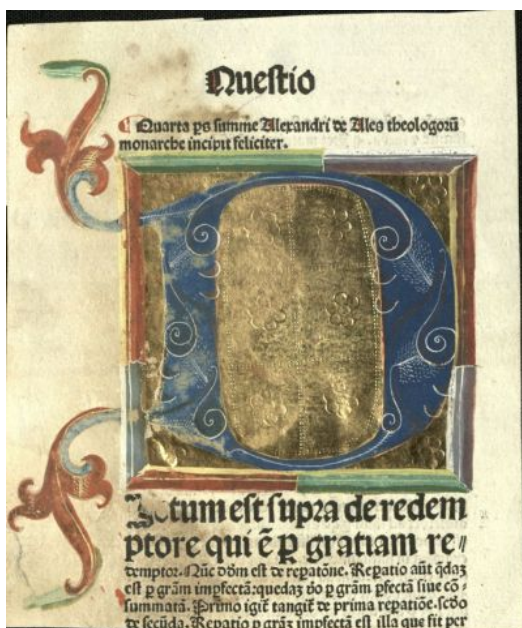 Questio
Quarta ps summe Alexandri de Ales theologoꝝ
monarche incipit feliciter.
D
Ictum est supra de redem
ptore qui ē ꝑ gratiam re⸗
demptor. Nūc dōm est de repatōne. Repatio aūt q̄daꝫ
est ꝑ grām imꝑfectā: quedaꝫ ꝟo ꝑ grām ꝑfectā siue cō⸗
summatā. Primo igiť tangiť de prima repatiōe. scďo
de secūda. Repatio ꝑ grāꝫ imꝑfectā est illa que fit per